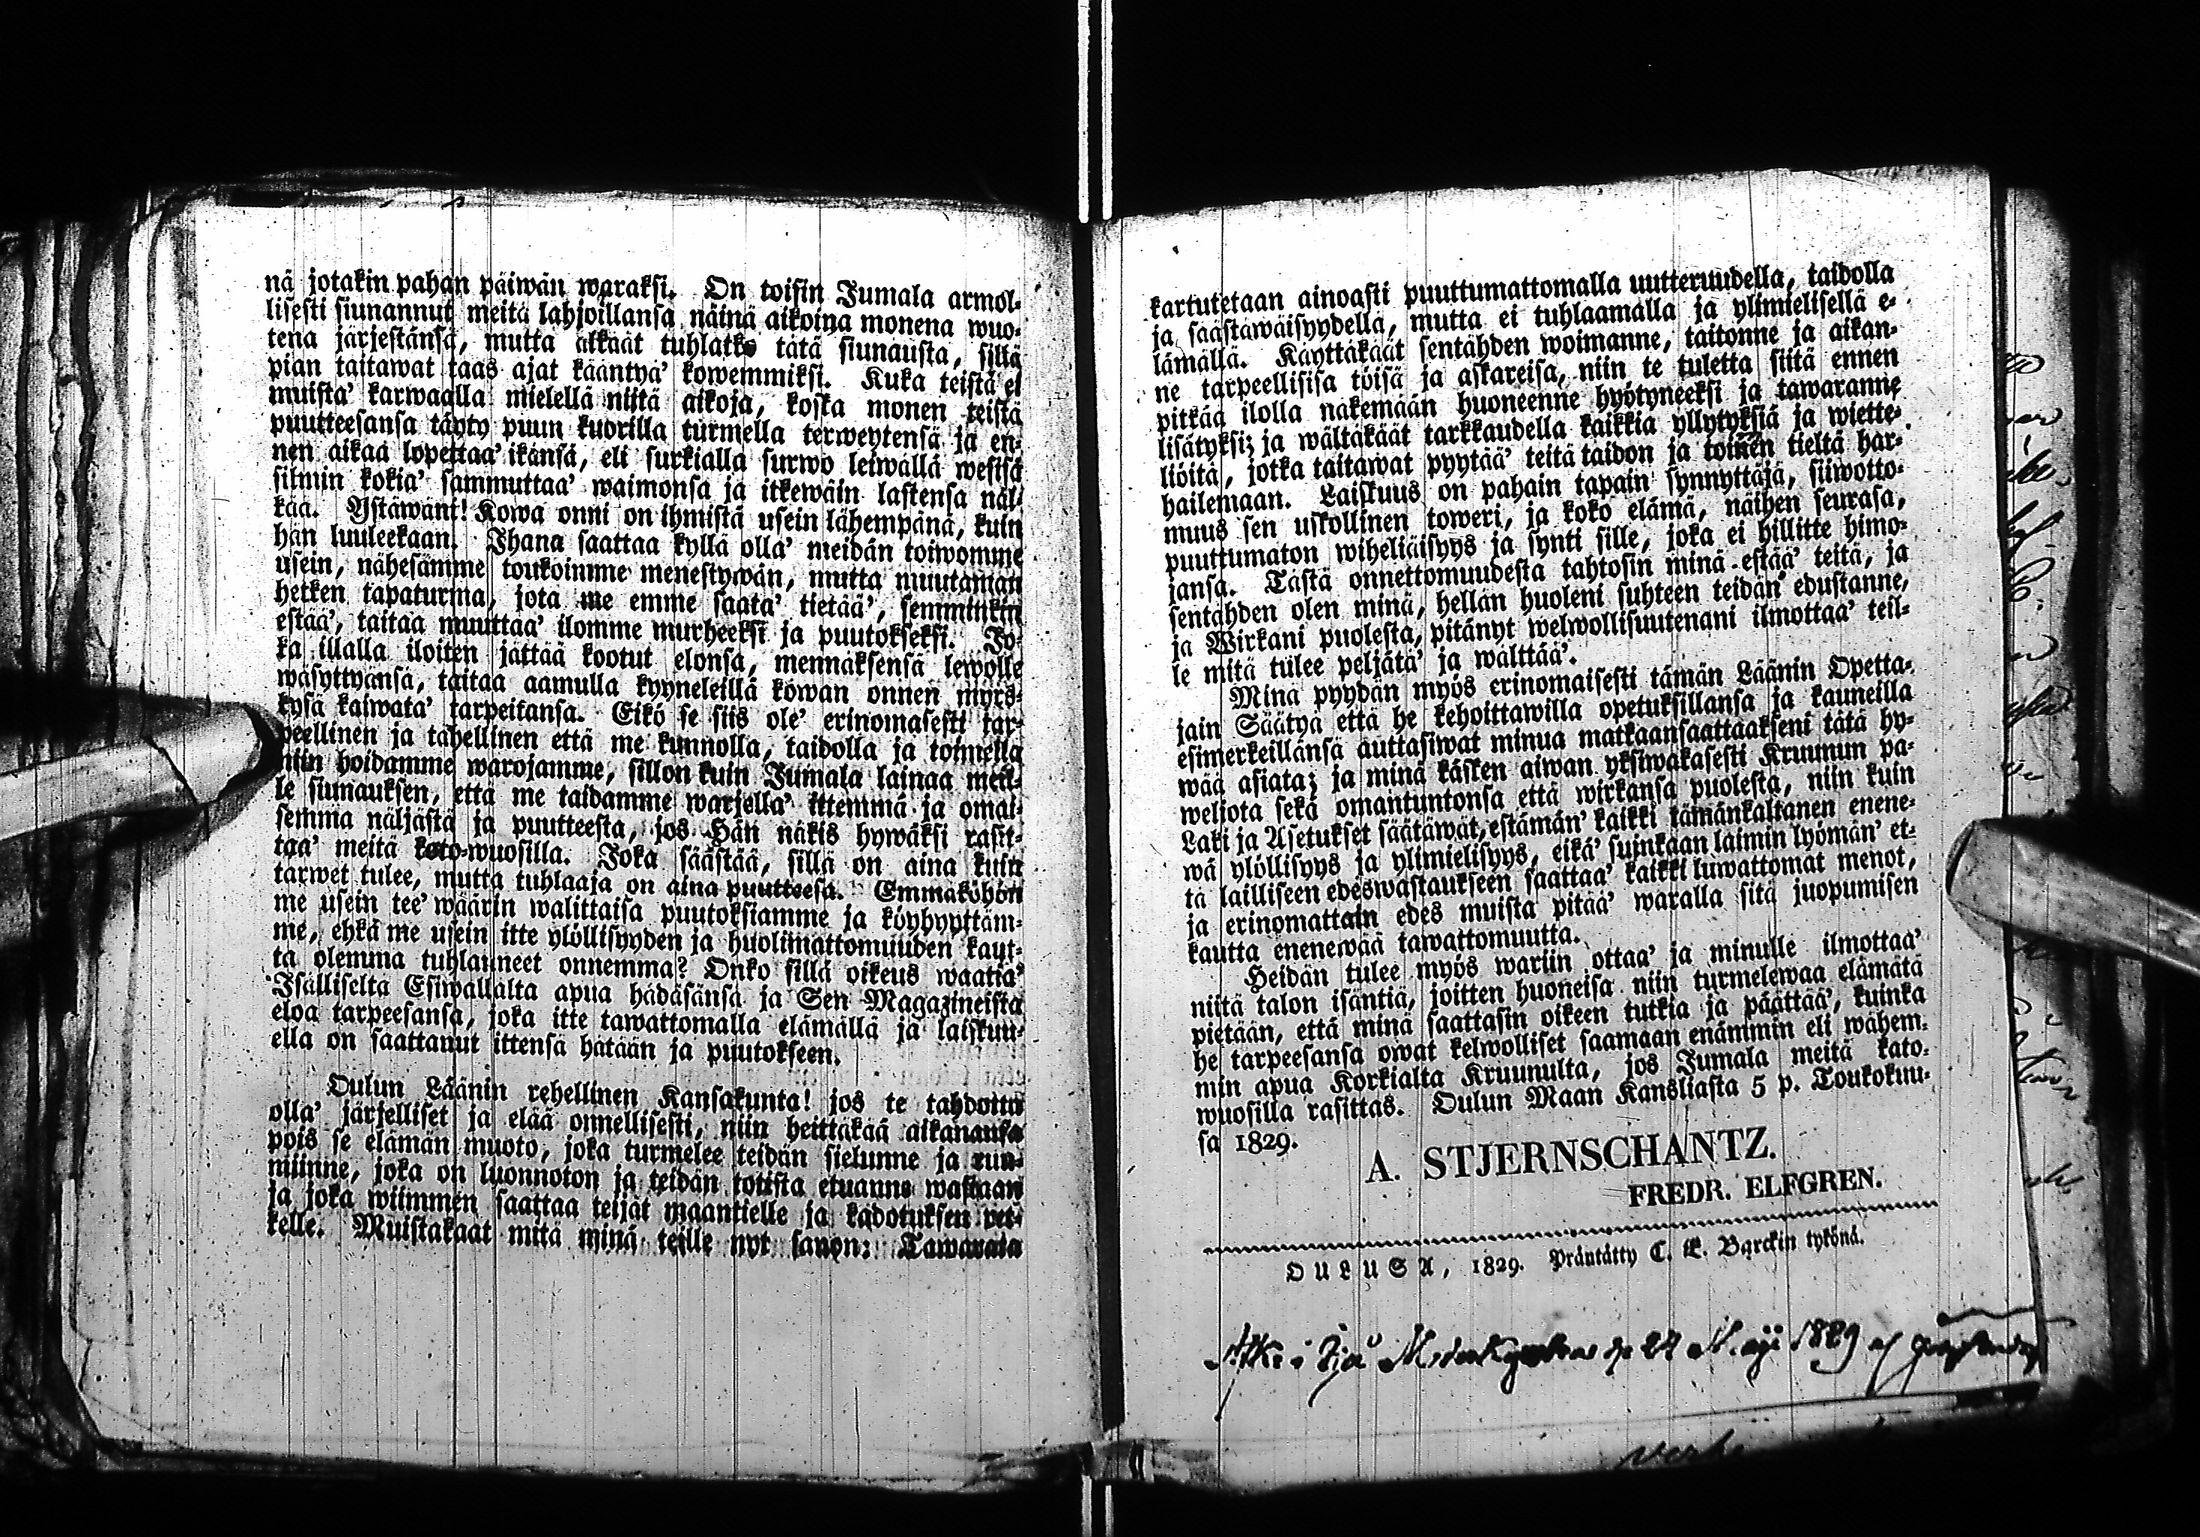 nä jotakin pahan päiwän waraksi. On toisin Jumala armol-
lisesti siunannut meitä lahjoillansa näinä aikoina monena wuo-
tena järjestänsä, mutta älkäät tuhlatko tätä siunausta, sillä
pian taitawat taas ajat kääntyä' kowemmiksi. Kuka teistä ei
muista' karwaalla mielellä niitä aikoja, koska monen teistä
puutteesansa täyty puun kuorilla turmella terweytensä ja en-
nen aikaa lopettaa' ikänsä, eli surkialla surwo leiwällä wesisä
silmin kokia' sammuttaa' waimonsa ja itkewäin lastensa näl-
kää. Ystäwänt! Kowa onni on ihmistä usein lähempänä, kuin
hän luuleekaan. Ihana saattaa kyllä olla' meidän toiwomme
usein, nähesämme toukoimme menestywän, mutta muutaman
hetken tapaturma, jota me emme saata' tietää', semminkin
estää', taitaa muuttaa' ilomme murheeksi ja puutokseksi. Jo-
ka illalla iloiten jättää kootut elonsa, mennäksensä lewolle
wäsyttyänsä, taitaa aamulla kyyneleillä kowan onnen myrs-
kysä kaiwata' tarpeitansa. Eikö se siis ole' erinomasesti tar-
peellinen ja tähellinen että me kunnolla, taidolla ja toimella
niin hoidamme warojamme, sillon kuin Jumala lainaa meil-
le siunauksen, että me taidamme warjella' ittemmä ja omai-
semma näljästä ja puutteesta, jos Hän näkis hywäksi rasit-
taa' meitä kato-wuosilla. Joka säästää, sillä on aina kuin
tarwet tulee, mutta tuhlaaja on aina puutteesa. Emmäköhön
me usein tee' wäärin walittaisa puutoksiamme ja köyhyyttäm-
me, ehkä me usein itte ylöllisyyden ja huolimattomuuden kaut-
ta olemma tuhlanneet onnemma? Onko sillä oikeus waatia'
Isälliseltä Esiwallalta apua hädäsänsä ja Sen Magazineista
eloa tarpeesansa, joka itte tawattomalla elämällä ja laiskuu-
ella on saattanut ittensä hätään ja puutokseen.
Oulun Läänin rehellinen Kansakunta! jos te tahdotta
olla' järjelliset ja elää onnellisesti, niin heittäkää aikananfa
pois se elämän muoto, joka turmelee teidän sielunne ja ruu-
miinne, joka on luonnoton ja teidän totista etuanne wastaan
ja joka wiimmen saattaa teijät maantielle ja kadotuksen ret-
kelle. Muistakaat mitä minä teille nyt sanon: Tawarata
kartutetaan ainoasti puuttumattomalla uutteruudella, taidolla
ja säästäwäisyydellä, mutta ei tuhlaamalla ja ylimielisellä e-
lämällä. Käyttäkäät sentähden woimanne, taitonne ja aikan-
ne tarpeellisisa töisä ja askareisa, niin te tuletta siitä ennen
pitkää ilolla näkemään huoneenne hyötyneeksi ja tawaranne
lisätyksi; ja wältäkäät tarkkaudella kaikkia yllytyksiä ja wiette-
liöitä, jotka taitawat pyytää' teitä taidon ja toimen tieltä har-
hailemaan. Laiskuus on pahain tapain synnyttäjä, siiwotto-
muus sen uskollinen toweri, ja koko elämä, näihen seurasa,
puuttumaton wiheliäisyys ja synti sille, joka ei hillitte himo-
jansa. Tästä onnettomuudesta tahtosin minä estää' teitä, ja
sentähden olen minä, hellän huoleni suhteen teidän edustanne,
ja Wirkani puolesta, pitänyt welwollisuutenani ilmottaa' teil-
le mitä tulee peljätä' ja wälttää'.
Minä pyydän myös erinomaisesti tämän Läänin Opetta-
jain Säätyä että he kehoittawilla opetuksillansa ja kauneilla
esimerkeillänsä auttasiwat minua matkaansaattaakseni tätä hy-
wää asiata; ja minä käsken aiwan yksiwakasesti Kruunun pa-
weljota sekä omantuntonsa että wirkansa puolesta, niin kuin
Laki ja Asetukset säätäwät, estämän' kaikki tämänkaltanen enene-
wä ylöllisyys ja ylimielisyys, eikä' suinkaan laimin lyömän' et-
tä lailliseen edeswastaukseen saattaa' kaikki luwattomat menot,
ja erinomattain edes muista pitää' waralla sitä juopumisen
kautta enenewää tawattomuutta.
Heidän tulee myös wariin ottaa' ja minulle ilmottaa'
niitä talon isäntiä, joitten huoneisa niin turmelewaa elämätä
pietään, että minä saattasin oikeen tutkia ja päättää', kuinka
he tarpeesansa owat kelwolliset saamaan enämmin eli wähem-
min apua Korkialta Kruunulta, jos Jumala meitä kato-
wuosilla rasittas. Oulun Maan Kansliasta 5 p. Toukokuu-
sa 1829.
A. STJERNSCHANTZ.
FREDR. ELFGREN.
OULUSA, 1829. Präntätty C. E. Barckin tykönä.
27 Maji 1829 af